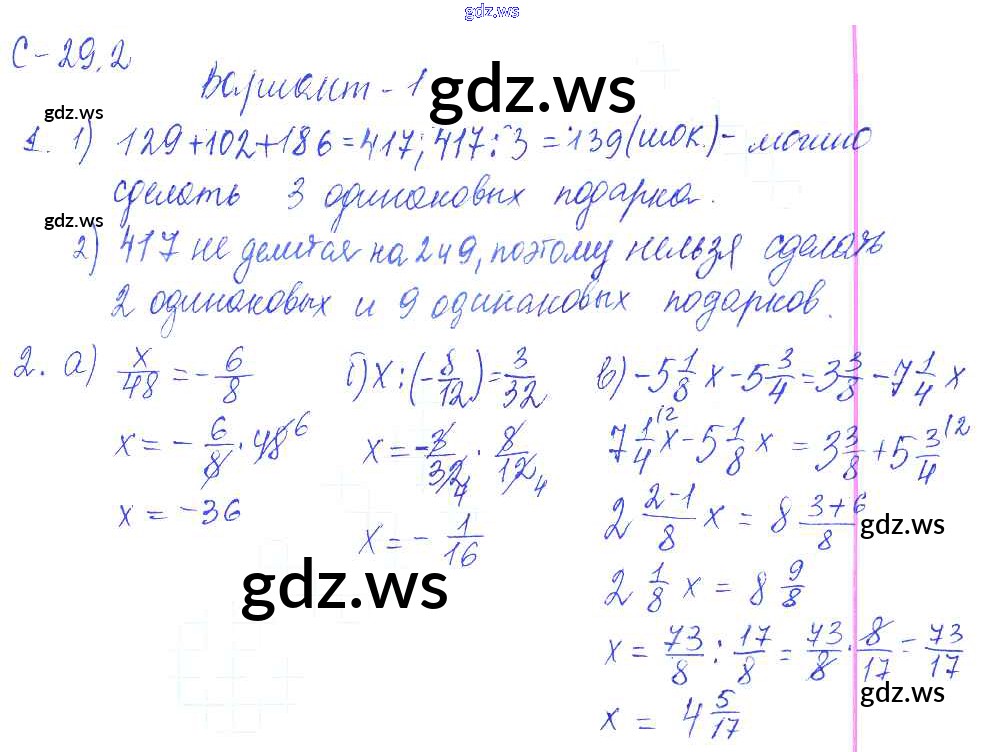 gdz.ws
С-29.2
Вариант - 1
gdz.ws
gdz.ws
1. 1) 129+102+186=417; 417:3=139 (шок.) - можно
сделать 3 одинаковых подарка.
gdz.ws
2) 417 не делится на 2 и 9, поэтому нельзя сделать
2 одинаковых и 9 одинаковых подарков.
2. а) x/48 = - 6/8
x = - 6/8 · 48 6
x = -36
б) x : (- 8/12) = 3/32
x = - 3/32 4 · 8/12 4
x = - 1/16
в) -5 1/8 x - 5 3/4 = 3 3/8 - 7 1/4 x
7 1/4 /2 x - 5 1/8 x = 3 3/8 + 5 3/4 /2
2 2-1/8 x = 8 3+6/8
gdz.ws
2 1/8 x = 8 9/8
gdz.ws
x = 73/8 : 17/8 = 73/8 · 8/17 = 73/17
gdz.ws
x = 4 5/17